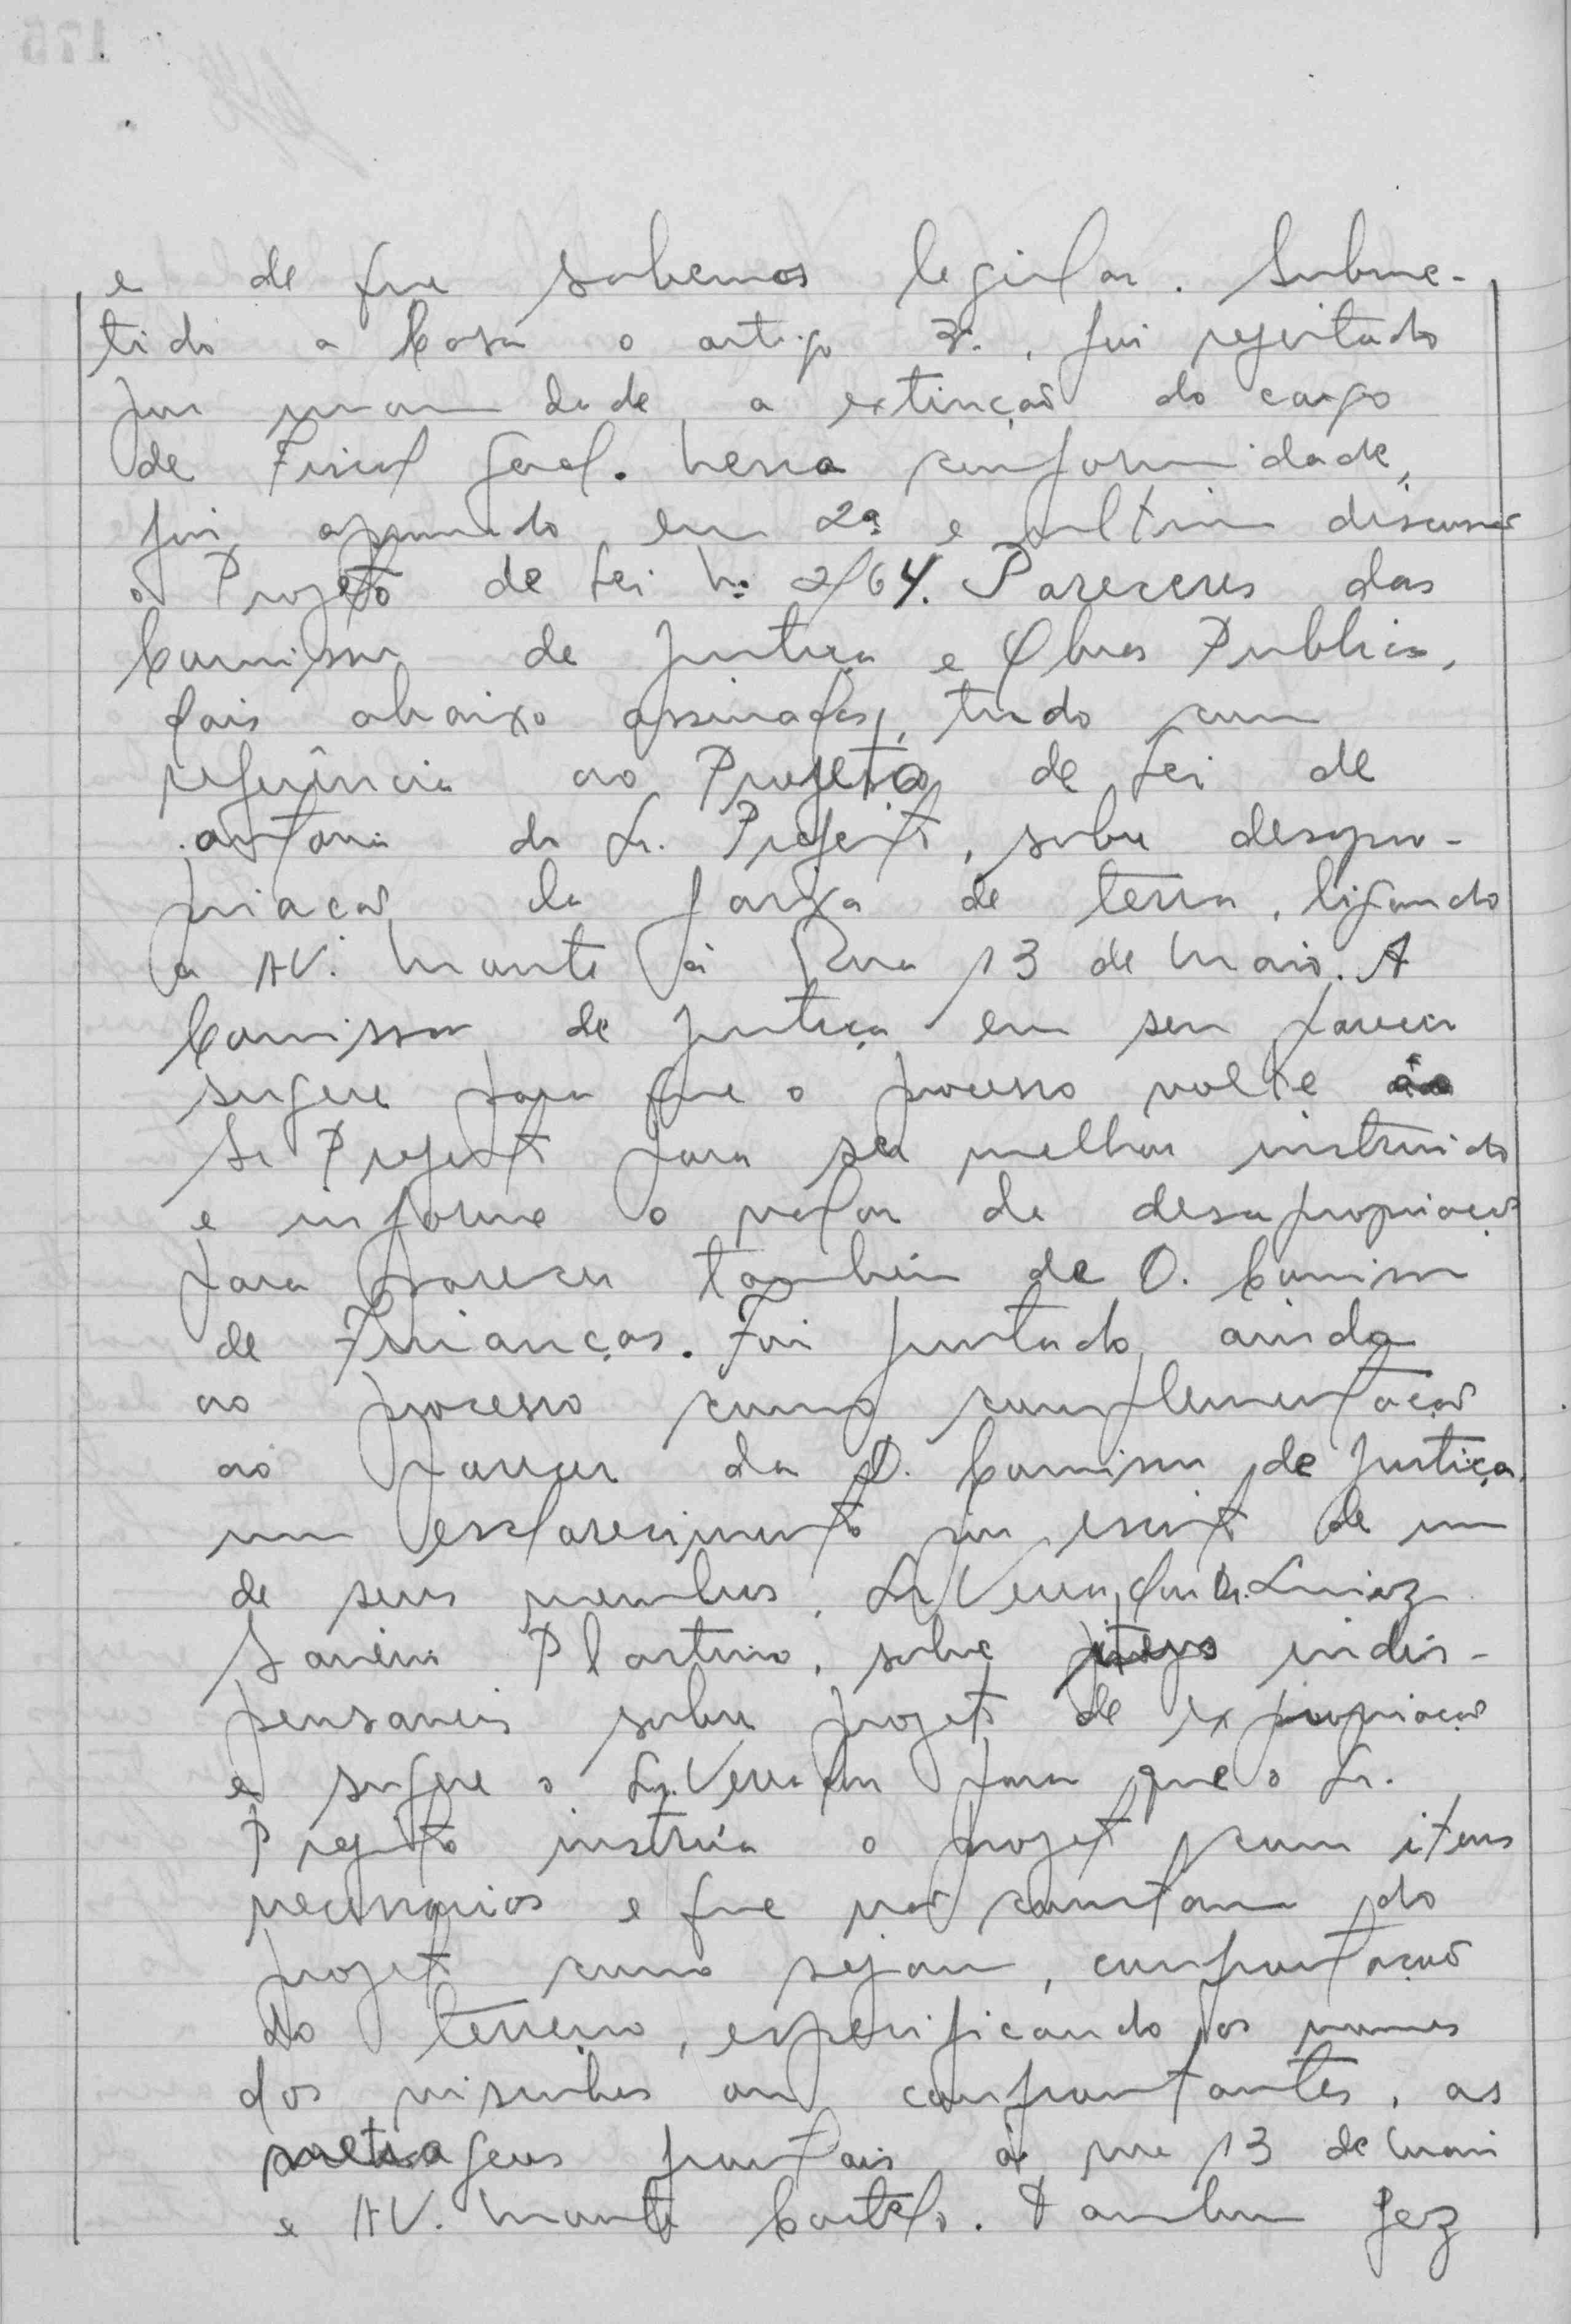 e de que sabemos legislar. Subme-
tido a Casa o artigo 3º, foi rejeitado
por unanimidade, a extinção do cargo
de Fiscal Geral. Nessa conformidade,
foi aprovado em 2ª e ultima discussão
o Projeto de Lei Nº 2/64. Pareceres das
Comissão de Justiça e Obras Publicas,
dois abaixo assinados, tudo com
referência ao Projeto de Lei de
autoria do Sr. Prefeito, sobre desapro-
priação da faixa de terra, ligando
a AV. Monte à Rua 13 de Maio. A
Comissão de Justiça em seu parecer
sugere para que o processo volte ao
Sr Prefeito para ser melhor instruido
e informe o valor da desapropriação
para parecer também de D. Comissão
de Finanças. Foi juntado, ainda
ao processo como complementação
ao parecer da D. Comissão de Justiça,
um esclarecimento por escrito de um
de seus membros, Sr Vereador Dr. Luiz
Savério Plastino, sobre itens indis-
pensaveis sobre projeto de expropriação
e sugere o Sr. Vereador para que o Sr.
Prefeito instrua o projeto com itens
necessarios e que não constam do
projeto como sejam, confrontação
do terreno, especificando os nomes
dos visinhos ou confrontantes, as
metragens frontais à rua 13 de Maio
e AV. Monte Castelo. Tambem fez